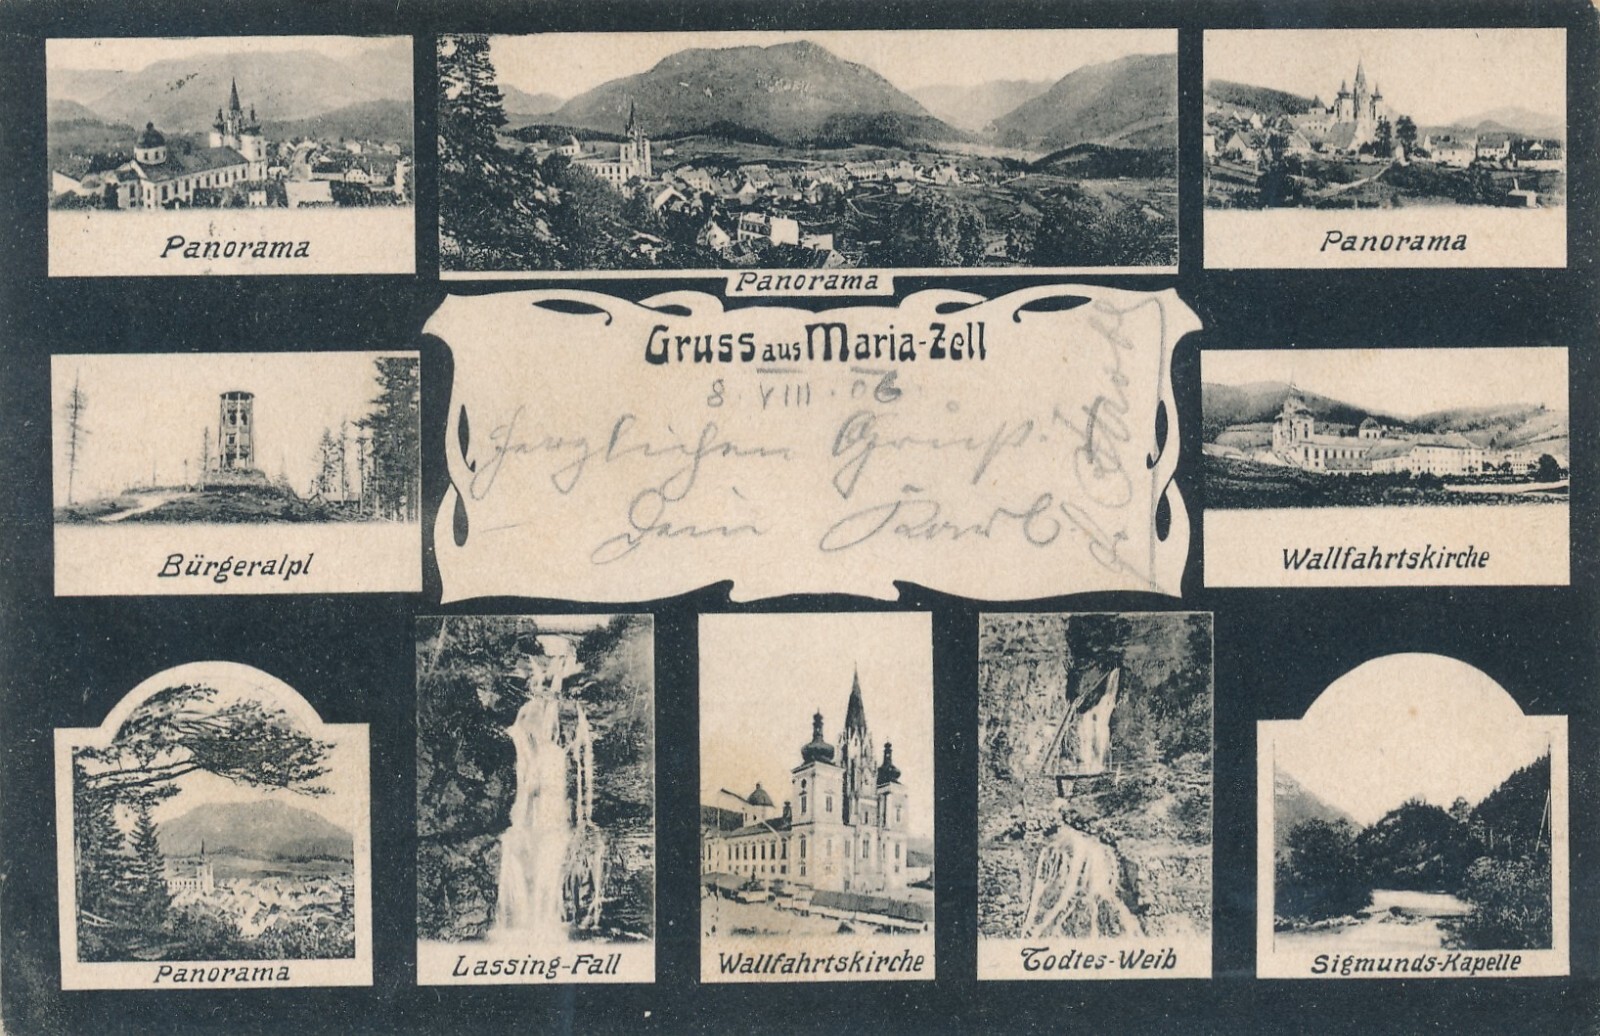 Panorama
Panorama
Panorama
Gruss aus Maria-Zell
8. VIII. 06
Herzlichen Gruß!
Dein Karl
Bürgeralpl
Wallfahrtskirche
Panorama
Lassing-Fall
Wallfahrtskirche
Todtes-Weib
Sigmunds-Kapelle